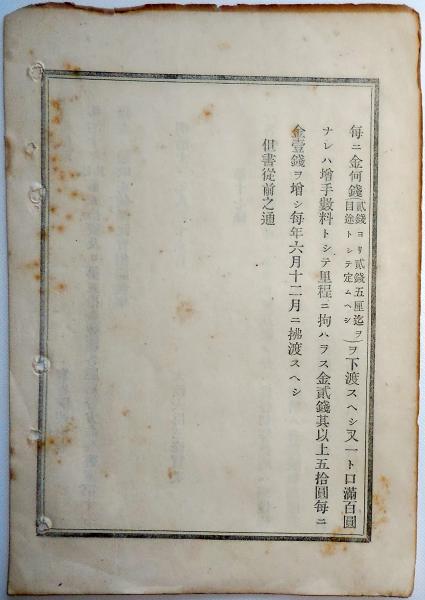 每ニ金何錢貳錢ヨリ貳錢五厘迄ヲ目途トシテ定ムヘシヲ下渡スヘシ又一ト口滿百圓
ナレハ增手數料トシテ里程ニ拘ハラス金貳錢其以上五拾圓每ニ
金壹錢ヲ增シ每年六月十二月ニ拂渡スヘシ
但書從前之通